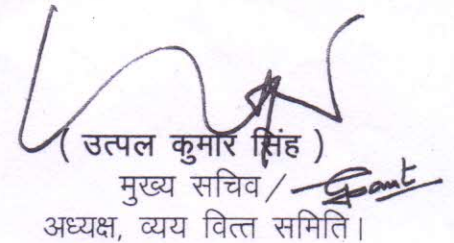 ( उत्पल कुमार सिंह )
मुख्य सचिव /
अध्यक्ष, व्यय वित्त समिति।